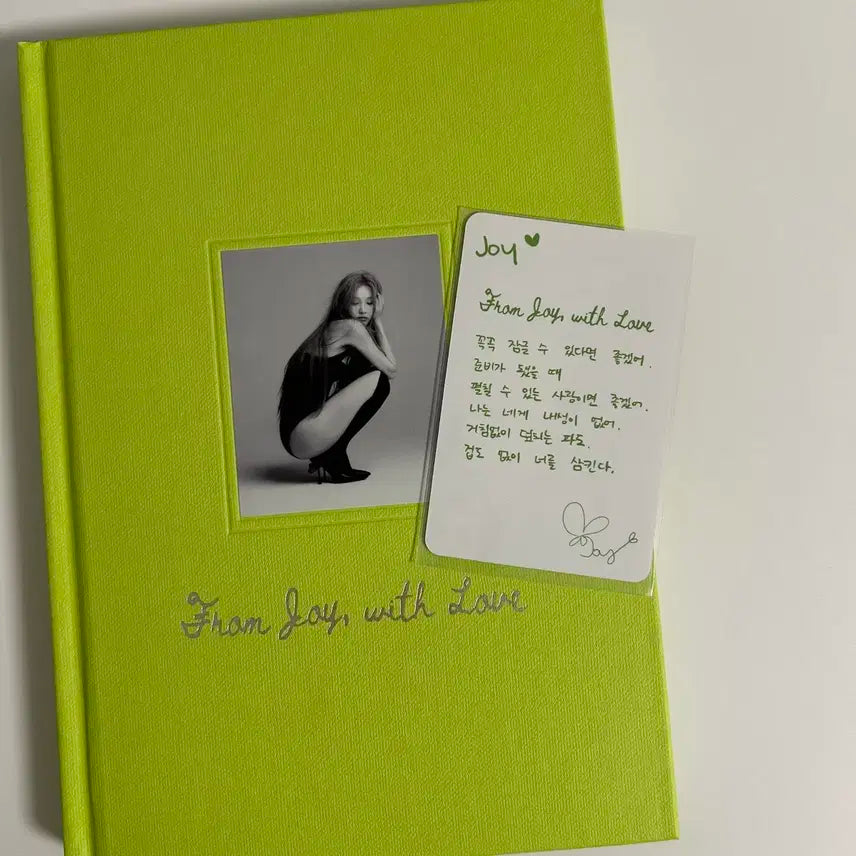 Joy
From Joy, with Love
꼭꼭 잠글 수 있다면 좋겠어.
준비가 됐을 때
펼칠 수 있는 사랑이면 좋겠어.
나는 네게 내성이 없어.
거침없이 덮치는 파도.
겁도 없이 너를 삼킨다.
Joy
From Joy, with Love